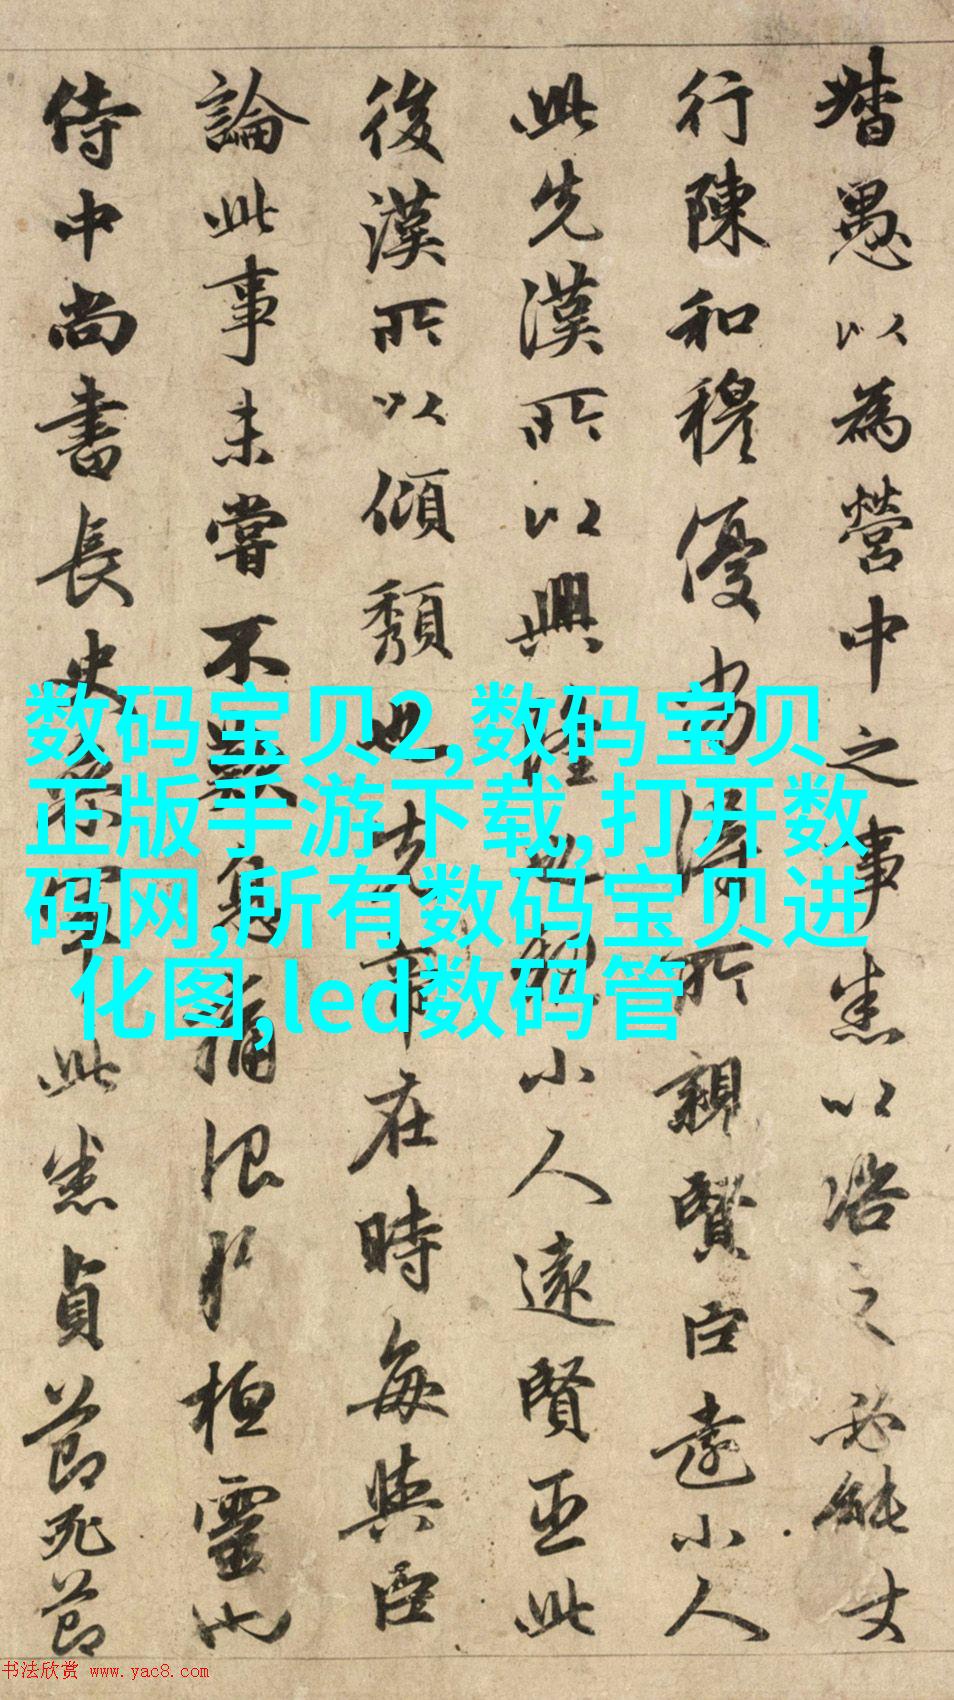 督愚以為營中之事悉以之必能
行陳和穆優劣得所親賢臣遠小人
此先漢所以興隆也親小人遠賢臣此
後漢所以傾頹也先帝在時每與臣
論此事未嘗不歎息痛恨於桓靈也
侍中尚書長史參軍此悉貞節死節
数码宝贝2,数码宝贝
正版手游下载,打开数
码网,所有数码宝贝进
化图,led数码管
书法欣赏 www.yac8.com